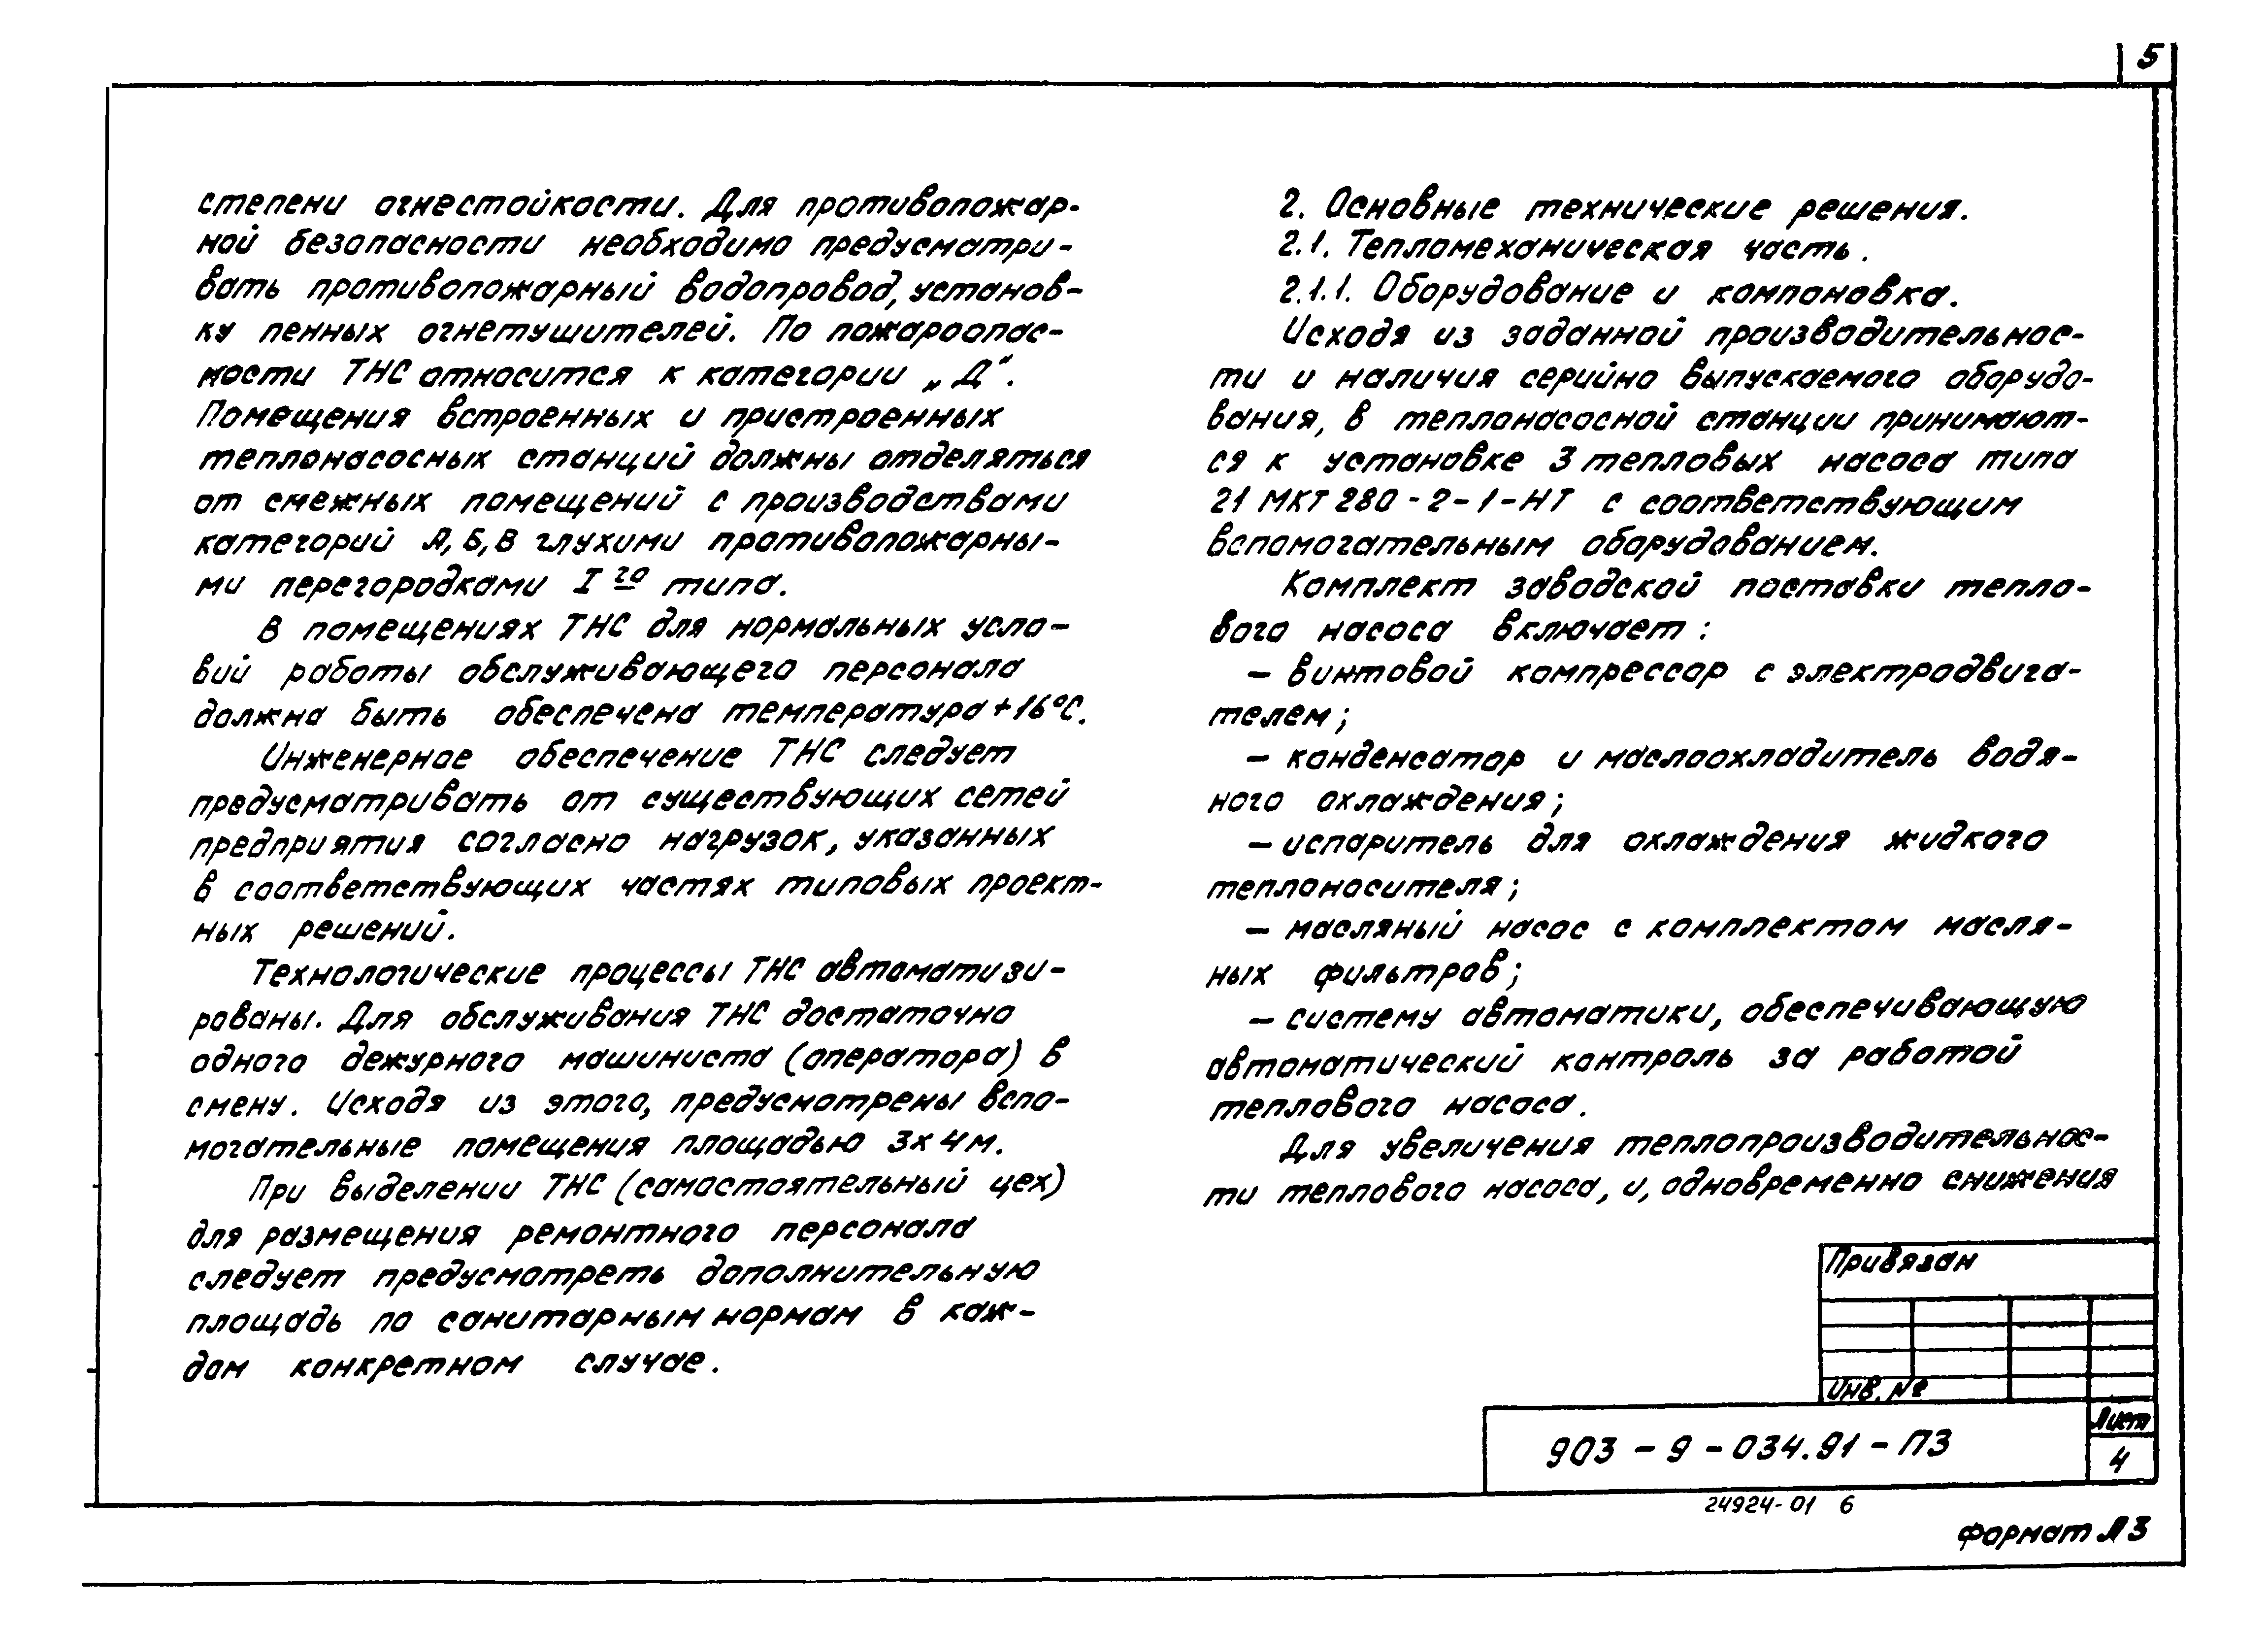 5
степени огнестойкости. Для противопожар-
ной безопасности необходимо предусматри-
вать противопожарный водопровод, установ-
ку пенных огнетушителей. По пожароопас-
ности ТНС относится к категории „Д“.
Помещения встроенных и пристроенных
теплонасосных станций должны отделяться
от смежных помещений с производствами
категорий А, Б, В глухими противопожарны-
ми перегородками I го типа.
В помещениях ТНС для нормальных усло-
вий работы обслуживающего персонала
должна быть обеспечена температура +16°С.
Инженерное обеспечение ТНС следует
предусматривать от существующих сетей
предприятия согласно нагрузок, указанных
в соответствующих частях типовых проект-
ных решений.
Технологические процессы ТНС автоматизи-
рованы. Для обслуживания ТНС достаточно
одного дежурного машиниста (оператора) в
смену. Исходя из этого, предусмотрены вспо-
могательные помещения площадью 3х4м.
При выделении ТНС (самостоятельный цех)
для размещения ремонтного персонала
следует предусмотреть дополнительную
площадь по санитарным нормам в каж-
дом конкретном случае.
2. Основные технические решения.
2.1. Тепломеханическая часть.
2.1.1. Оборудование и компоновка.
Исходя из заданной производительнос-
ти и наличия серийно выпускаемого оборудо-
вания, в теплонасосной станции принимают-
ся к установке 3 тепловых насоса типа
21 МКТ 280-2-1-НТ с соответствующим
вспомогательным оборудованием.
Комплект заводской поставки тепло-
вого насоса включает:
- винтовой компрессор с электродвига-
телем;
- конденсатор и маслоохладитель водя-
ного охлаждения;
- испаритель для охлаждения жидкого
теплоносителя;
- масляный насос с комплектом масля-
ных фильтров;
- систему автоматики, обеспечивающую
автоматический контроль за работой
теплового насоса.
Для увеличения теплопроизводительнос-
ти теплового насоса, и, одновременно снижения
Привязан
Инв. №
903-9-034.91-ПЗ
Лист
4
24924-01 6
Формат А3